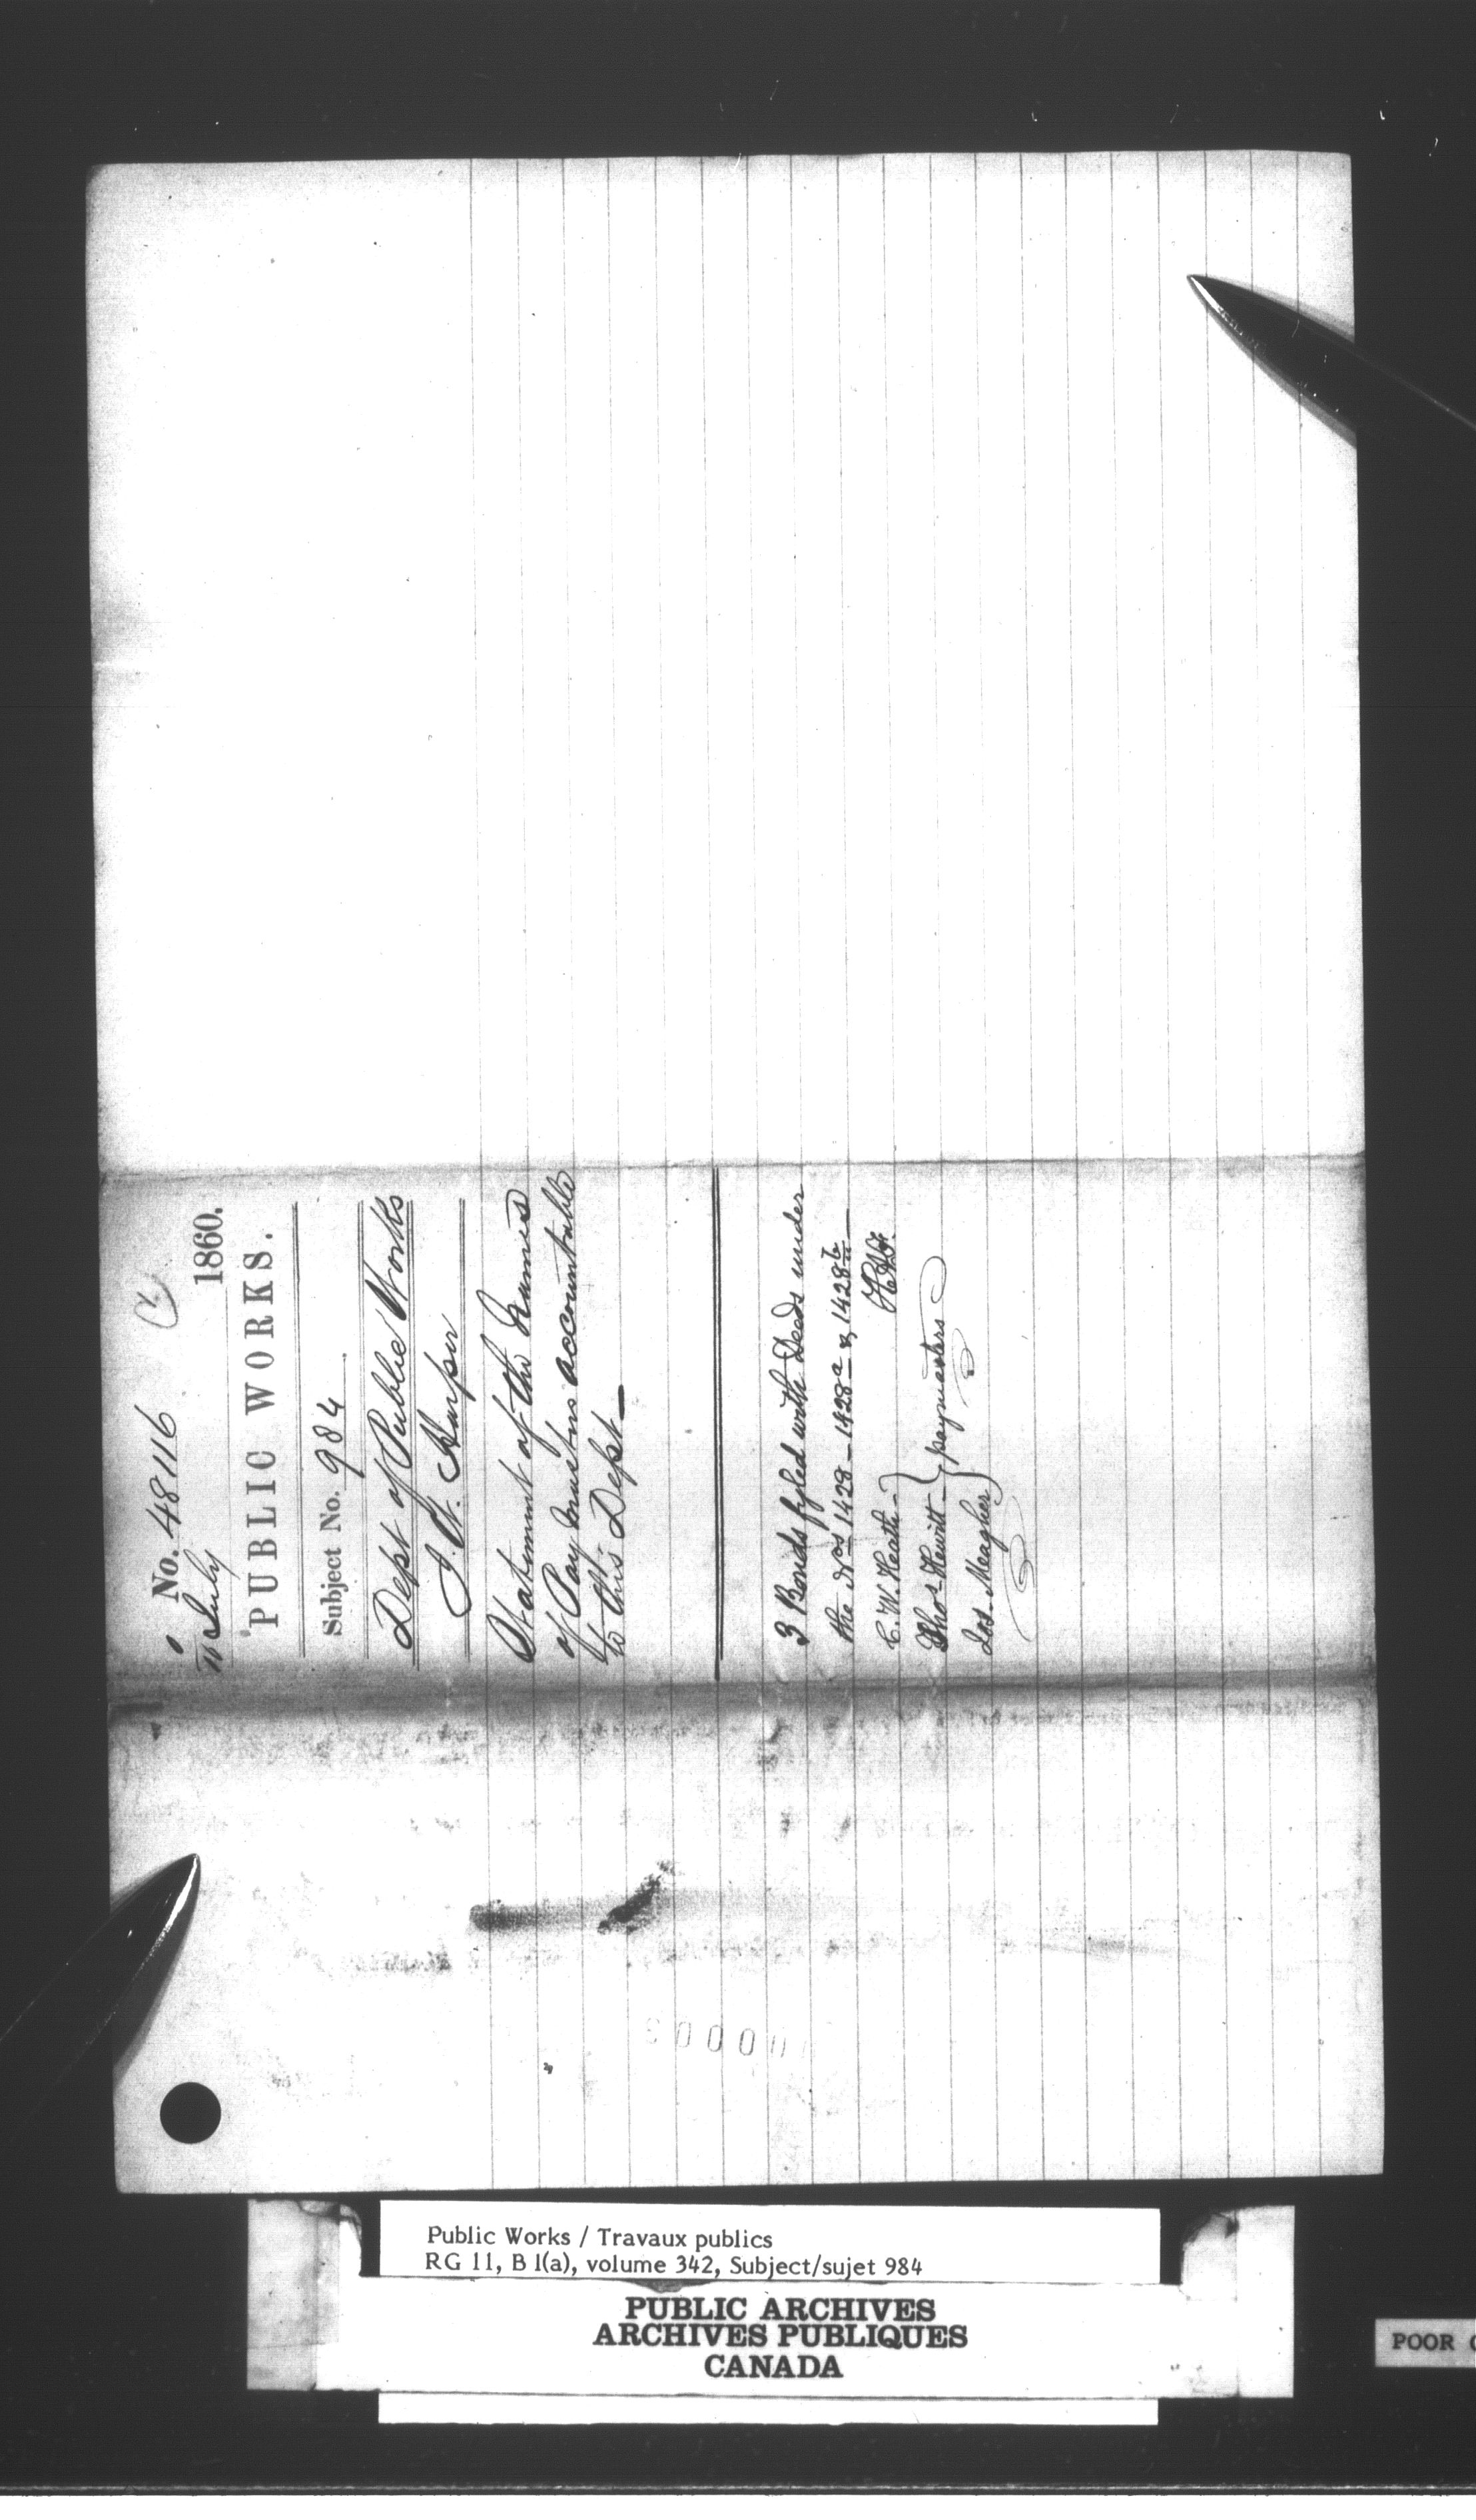 No. 48116
July 1860.
PUBLIC WORKS.
Subject No. 984
Dept of Public Works
J. W. Harper
Statement of the Names
of Paymasters accountable
to this Dept —
3 Bonds fyled with Deeds under
the Nos 1428 — 1428a & 1428b —
C. W. Heath —
Thos Hewitt — } paymasters
Jas. Meagher
Public Works / Travaux publics
RG 11, B 1(a), volume 342, Subject/sujet 984
PUBLIC ARCHIVES
ARCHIVES PUBLIQUES
CANADA
POOR